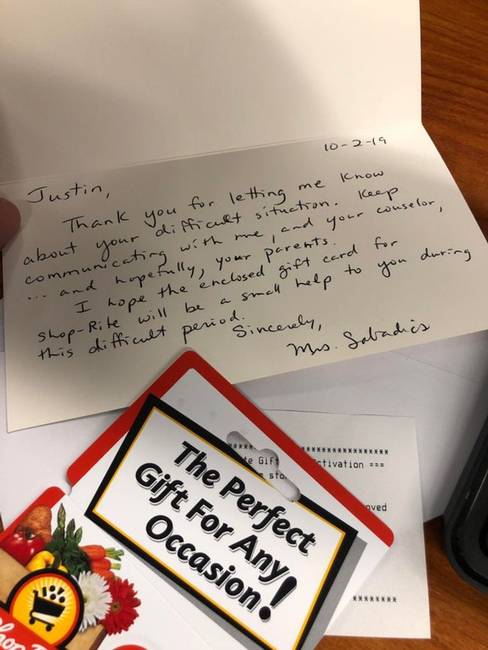 10-2-19
Justin,
Thank you for letting me know
about your difficult situation. Keep
communicating with me, and your counselor,
... and hopefully, your parents.
I hope the enclosed gift card for
Shop-Rite will be a small help to you during
this difficult period.
Sincerely,
Mrs. Sabadics
The Perfect
Gift For Any
Occasion!